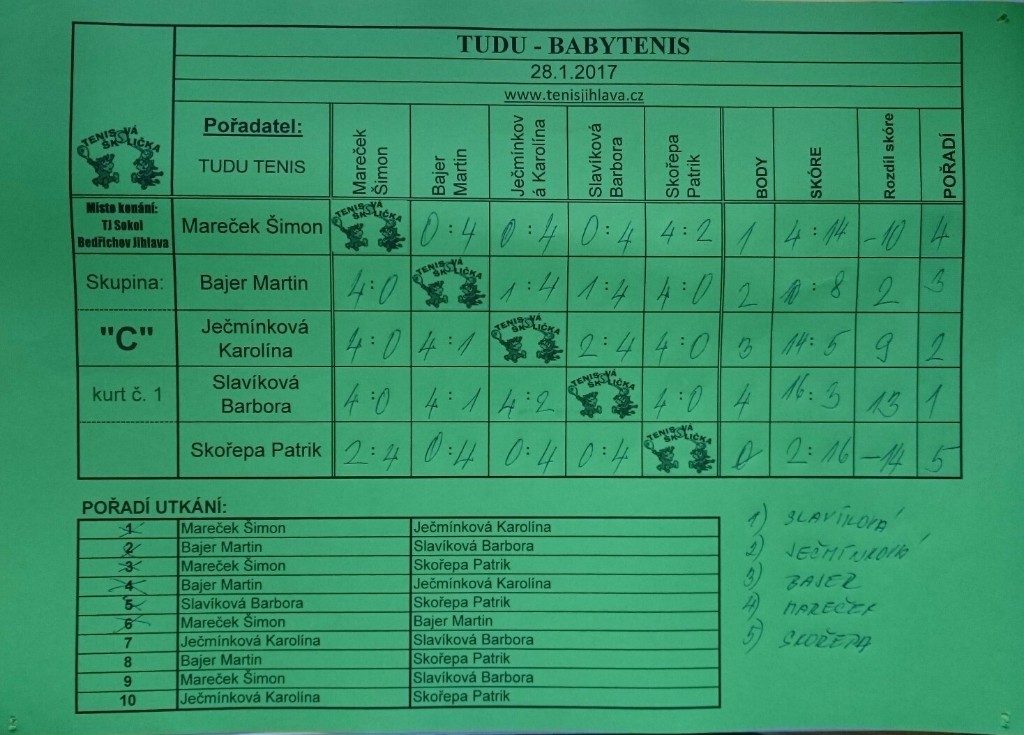 TUDU - BABYTENIS
28.1.2017
www.tenisjihlava.cz
TENISOVÁ ŠKOLIČKA
Pořadatel:
TUDU TENIS
Mareček Šimon
Bajer Martin
Ječmínková Karolína
Slavíková Barbora
Skořepa Patrik
BODY
SKÓRE
Rozdíl skóre
POŘADÍ
Místo konání:
TJ Sokol
Bedřichov Jihlava
Mareček Šimon 0:4 0:4 0:4 4:2 1 4:14 -10 4
Skupina: Bajer Martin 4:0 1:4 1:4 4:0 2 10:8 2 3
"C" Ječmínková Karolína 4:0 4:1 2:4 4:0 3 14:5 9 2
kurt č. 1 Slavíková Barbora 4:0 4:1 4:2 4:0 4 16:3 13 1
Skořepa Patrik 2:4 0:4 0:4 0:4 0 2:16 -14 5
POŘADÍ UTKÁNÍ:
1 Mareček Šimon Ječmínková Karolína
2 Bajer Martin Slavíková Barbora
3 Mareček Šimon Skořepa Patrik
4 Bajer Martin Ječmínková Karolína
5 Slavíková Barbora Skořepa Patrik
6 Mareček Šimon Bajer Martin
7 Ječmínková Karolína Slavíková Barbora
8 Bajer Martin Skořepa Patrik
9 Mareček Šimon Slavíková Barbora
10 Ječmínková Karolína Skořepa Patrik
1) SLAVÍKOVÁ
2) JEČMÍNKOVÁ
3) BAJER
4) MAREČEK
5) SKOŘEPA